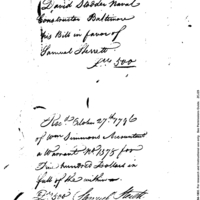 David Stodder Naval
Constructor Baltimore
his Bill in favor of
Samuel Sterett
500
Rec'd October 27th 1796
of Wm Simmons Accountant
a Warrant No 1378 for
Five hundred Dollars in
full of the within
500 Samuel Sterett